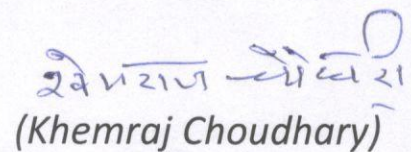 खेमराज चौधरी
(Khemraj Choudhary)